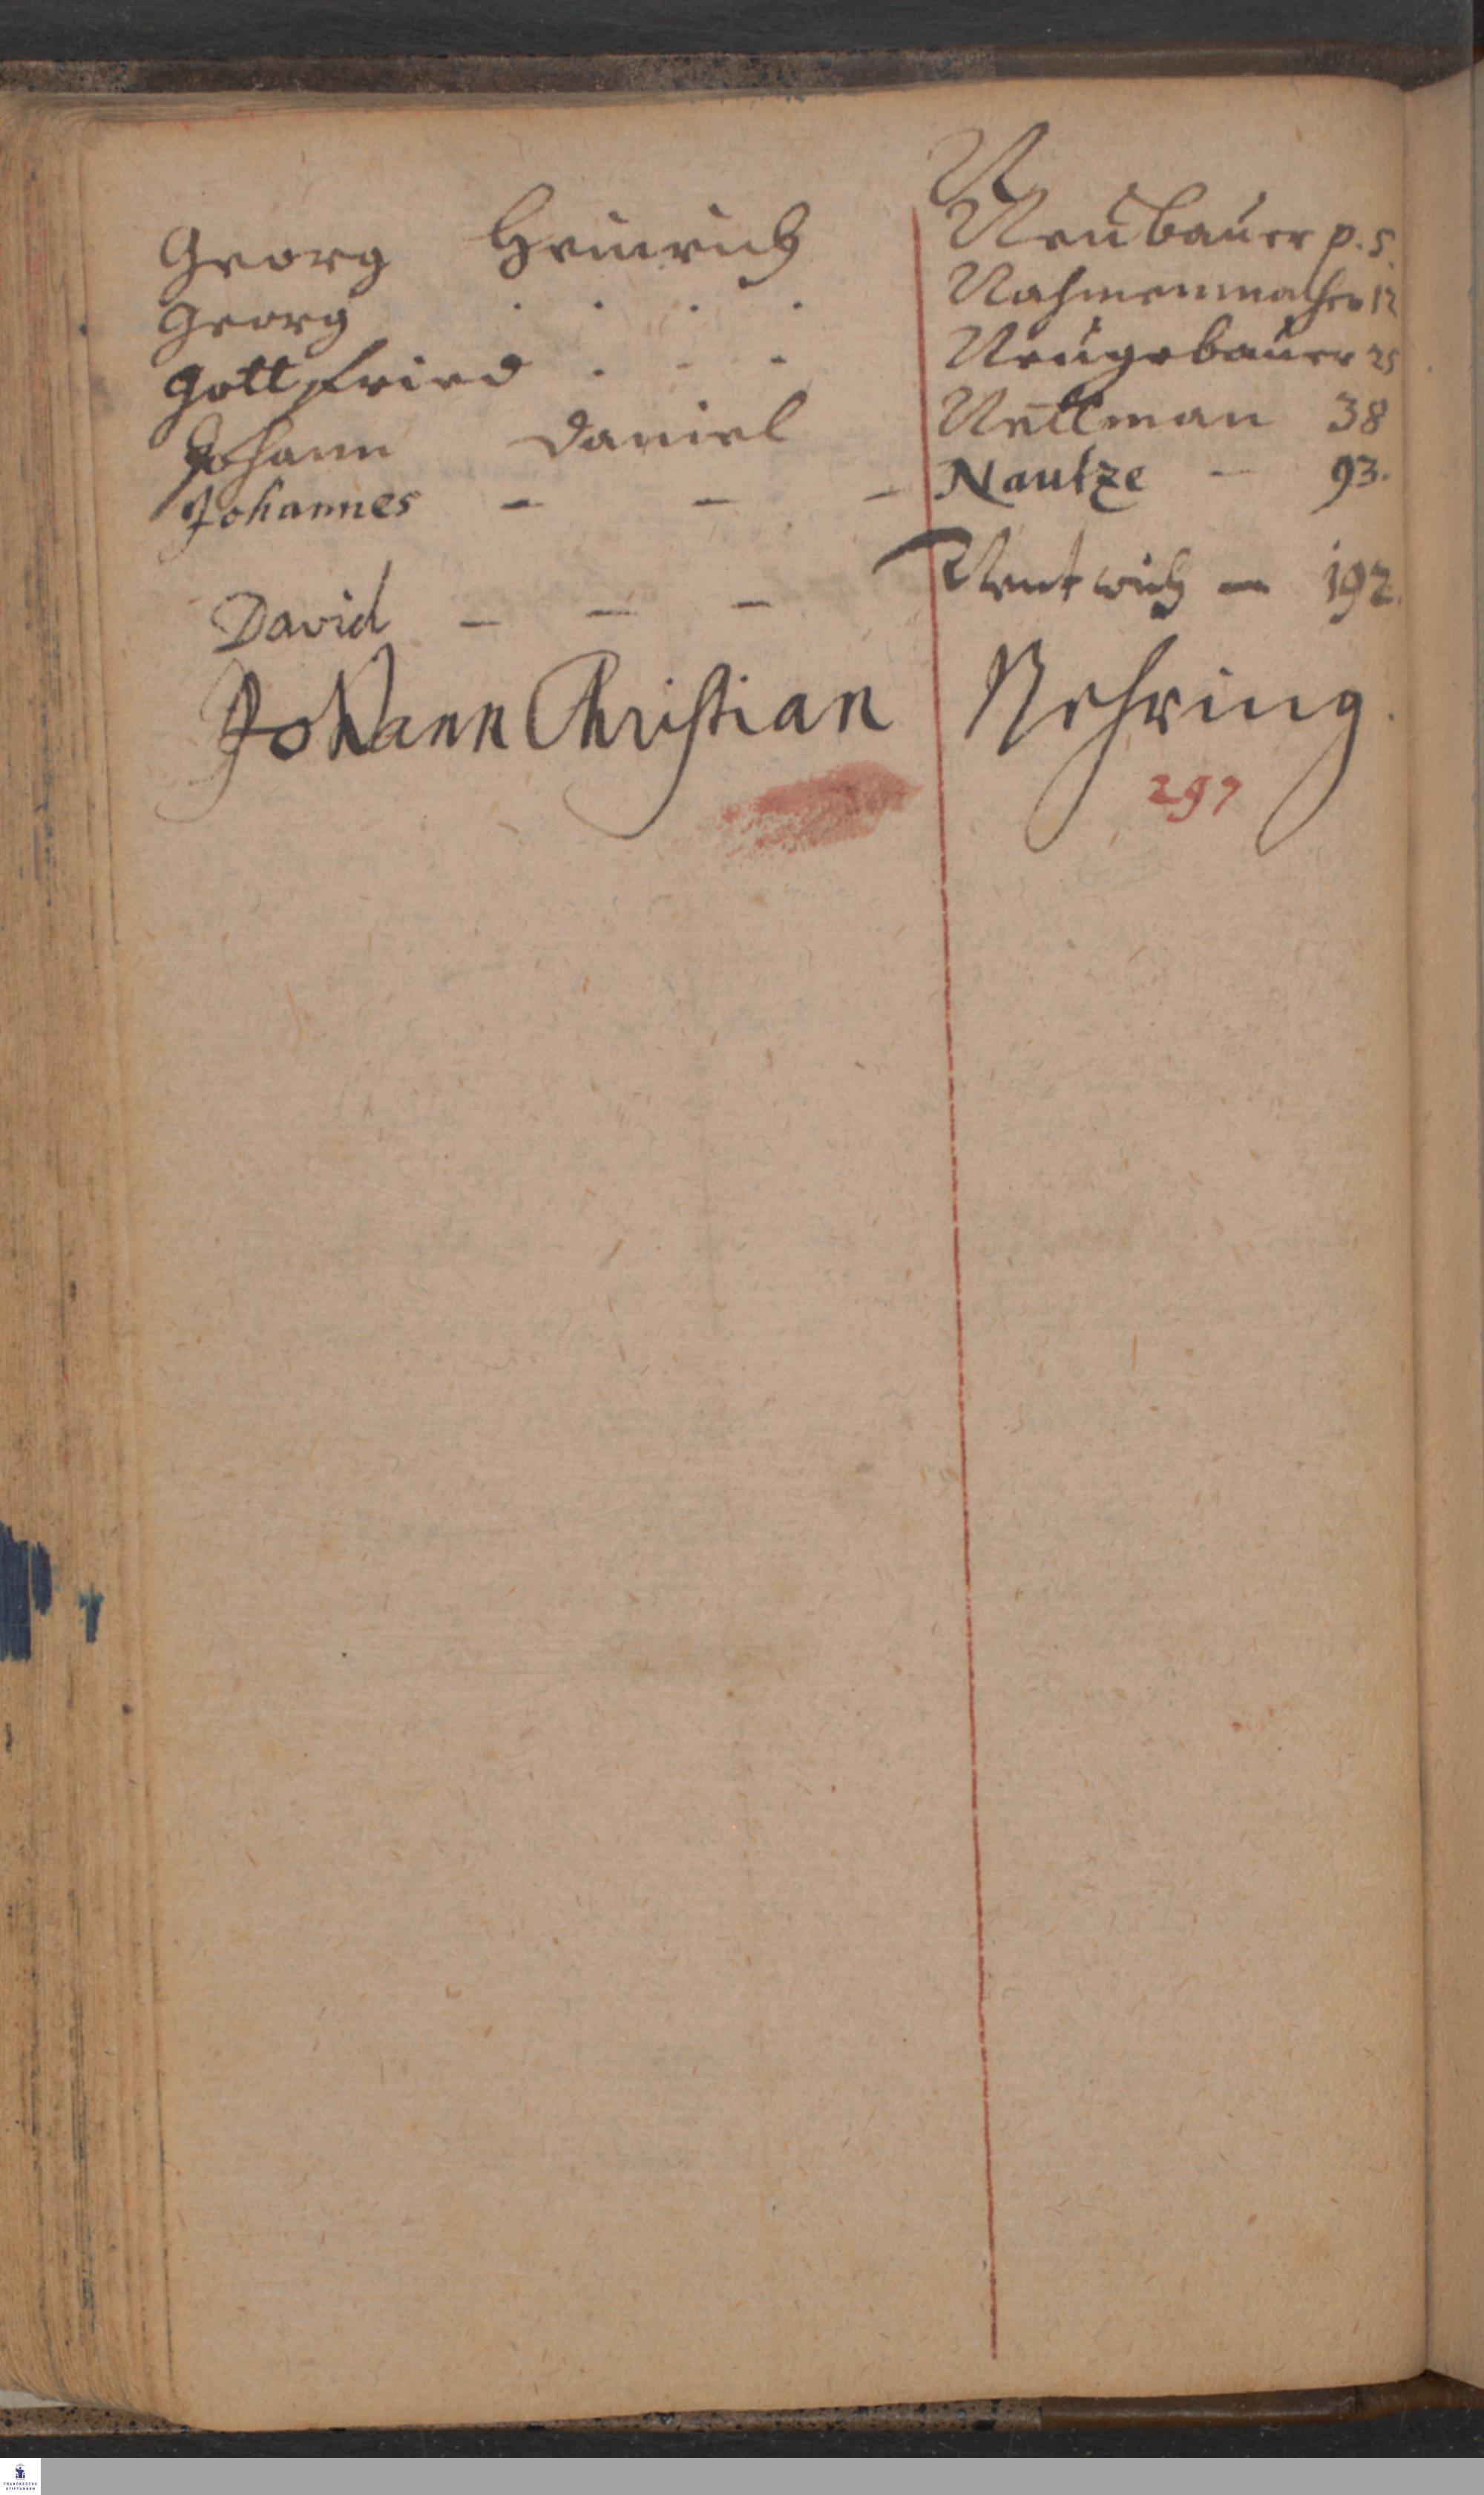 N
Georg Heinrich Neubauer p. 5.
Georg . . . . Nahmenmacher 12
Gottfried . . . Neugebauer 25
Johann Daniel Nettman 38
Johannes – – – Nautze – 93.
David – – – Nentwich – 192.
Johann Christian Nehring.
297
FRANCKESCHE
STIFTUNGEN